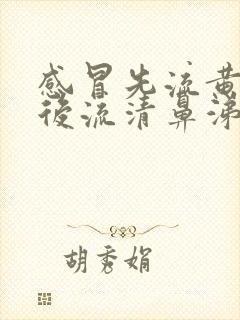 感冒先流黄
后流清鼻涕
胡秀娟